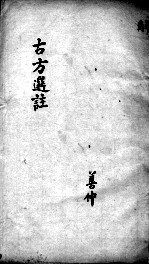 古方選註
善仲